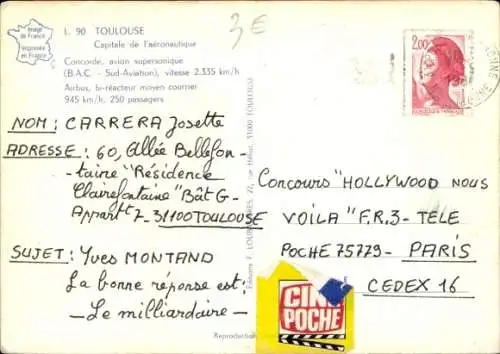 Image
de France
Imprimée
en France
L. 90 TOULOUSE
Capitale de l'aéronautique
Concorde, avion supersonique
(B.A.C. - Sud-Aviation), vitesse 2.335 km/h
Airbus, bi-réacteur moyen courrier
945 km/h, 250 passagers
3€
2,00
NOM : CARRERA Josette
ADRESSE : 60, Allée Bellefon-
taine "Résidence
Clairefontaine" Bât G-
Appart 7_31100 TOULOUSE
SUJET : YVES MONTAND
La bonne réponse est :
- Le milliardaire -
31000 TOULOUSE
Concours "HOLLYWOOD NOUS
VOILA" F.R.3 - TELE
POCHE 75779 - PARIS
CEDEX 16
CINE
POCHE
Reproduction